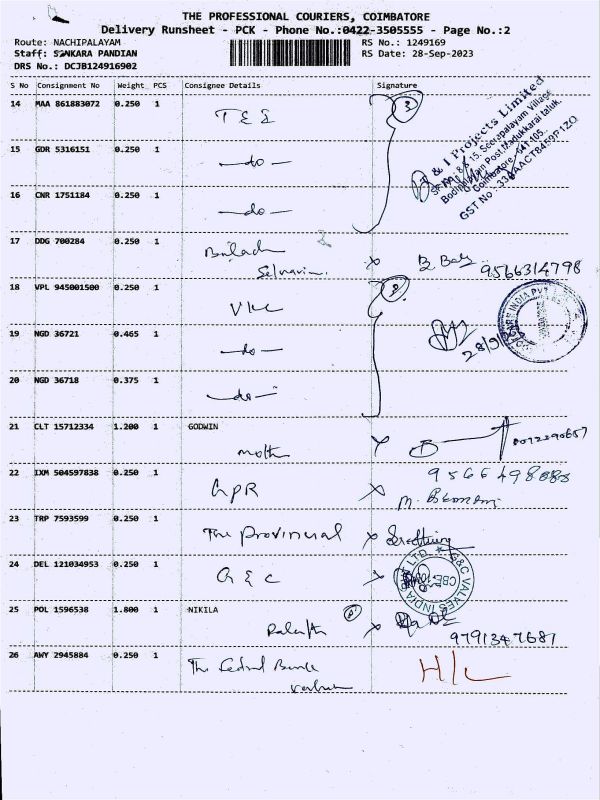 THE PROFESSIONAL COURIERS, COIMBATORE
Delivery Runsheet - PCK - Phone No.:0422-3505555 - Page No.:2
Route: NACHIPALAYAM
RS No.: 1249169
Staff: SANKARA PANDIAN
RS Date: 28-Sep-2023
DRS No.: DCJB124916902
S No Consignment No Weight PCS Consignee Details Signature
14 MAA 861883072 0.250 1 T & I 3
15 GDR 5316151 0.250 1 -do-
16 CNR 1751184 0.250 1 -do-
& I Projects Limited
Seerapalayam Village
Main Post, Madukkarai taluk.
Coimbatore - 641 105.
17 DDG 700284 0.250 1 x 9566314798
18 VPL 945001500 0.250 1
19 NGD 36721 0.465 1 -do- 28/9/
20 NGD 36718 0.375 1 -do-
21 CLT 15712334 1.200 1 GODWIN
moth x
22 IXM 504597838 0.250 1 GPR x
23 TRP 7593599 0.250 1 The Provincial x
24 DEL 121034953 0.250 1 G & C x
G&C VALVES INDIA LTD.
25 POL 1596538 1.800 1 NIKILA
x 9791347681
26 AWY 2945884 0.250 1 The Federal Bank H/L